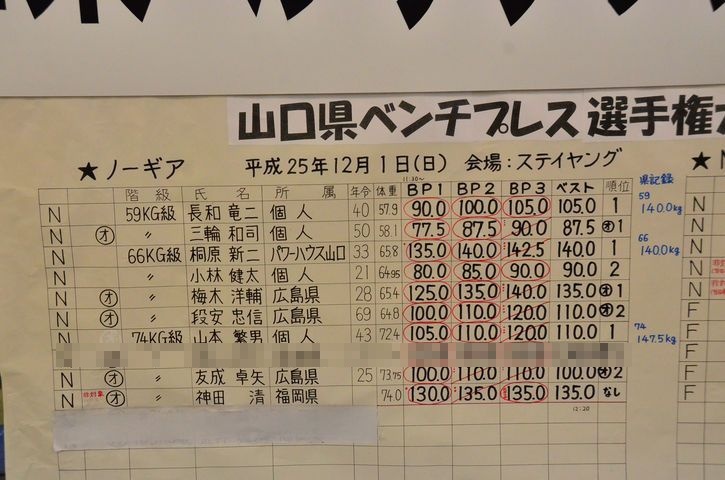 山口県ベンチプレス選手権
★ノーギア 平成25年12月1日(日) 会場:ステイヤング ★
11:30〜 県記録
階級 氏名 所属 年令 体重 BP1 BP2 BP3 ベスト 順位
59
N 59KG級 長和 竜二 個人 40 57.9 90.0 100.0 105.0 105.0 1 140.0kg N
N オ 〃 三輪 和司 個人 50 58.1 77.5 87.5 90.0 87.5 オ1 N
66
N 66KG級 桐原 新二 パワーハウス山口 33 65.8 135.0 140.0 142.5 140.0 1 140.0kg N
N 〃 小林 健太 個人 21 64.95 80.0 85.0 90.0 90.0 2 N
N オ 〃 梅木 洋輔 広島県 28 65.4 125.0 135.0 140.0 135.0 オ1 N
N オ 〃 段安 忠信 広島県 69 64.8 100.0 110.0 120.0 110.0 オ2 F
74
N 74KG級 山本 繁男 個人 43 72.4 105.0 110.0 120.0 110.0 1 147.5kg F
F
N オ 〃 友成 卓矢 広島県 25 73.75 100.0 110.0 110.0 100.0 オ2 F
N オ 〃 神田 清 福岡県 74.0 130.0 135.0 135.0 135.0 なし F
12:20